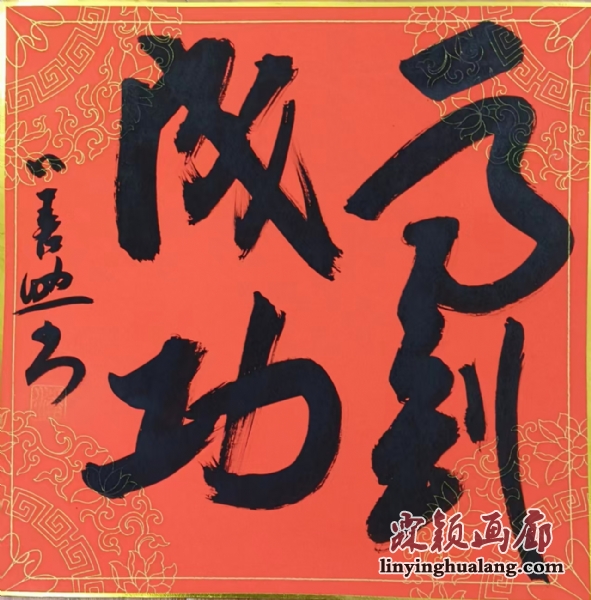 马到
成功
霖颖画廊
linyinghualang.com